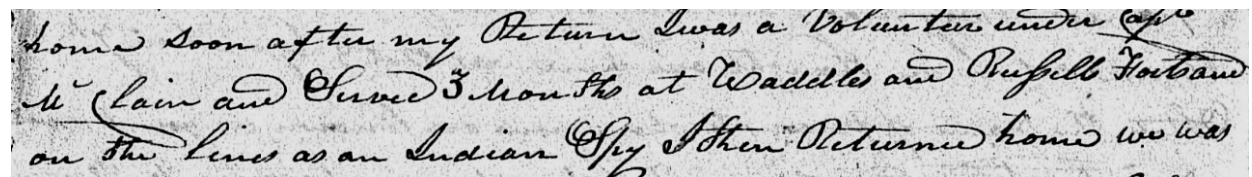 home soon after my Return I was a Volunteer under Capt
Mc Clain and Served 3 Months at Waddles and Russells Forts and
on the lines as an Indian Spy I then Returned home we was